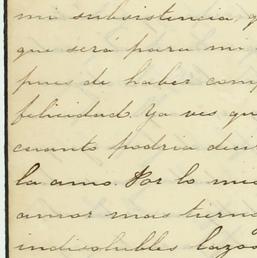 mi subsistencia, q
que será para mi
pues de haber com
felicidad. Ya ves qu
cuanto podria deci
la amo. Por lo mis
amor mas tierno
indisolubles lazos